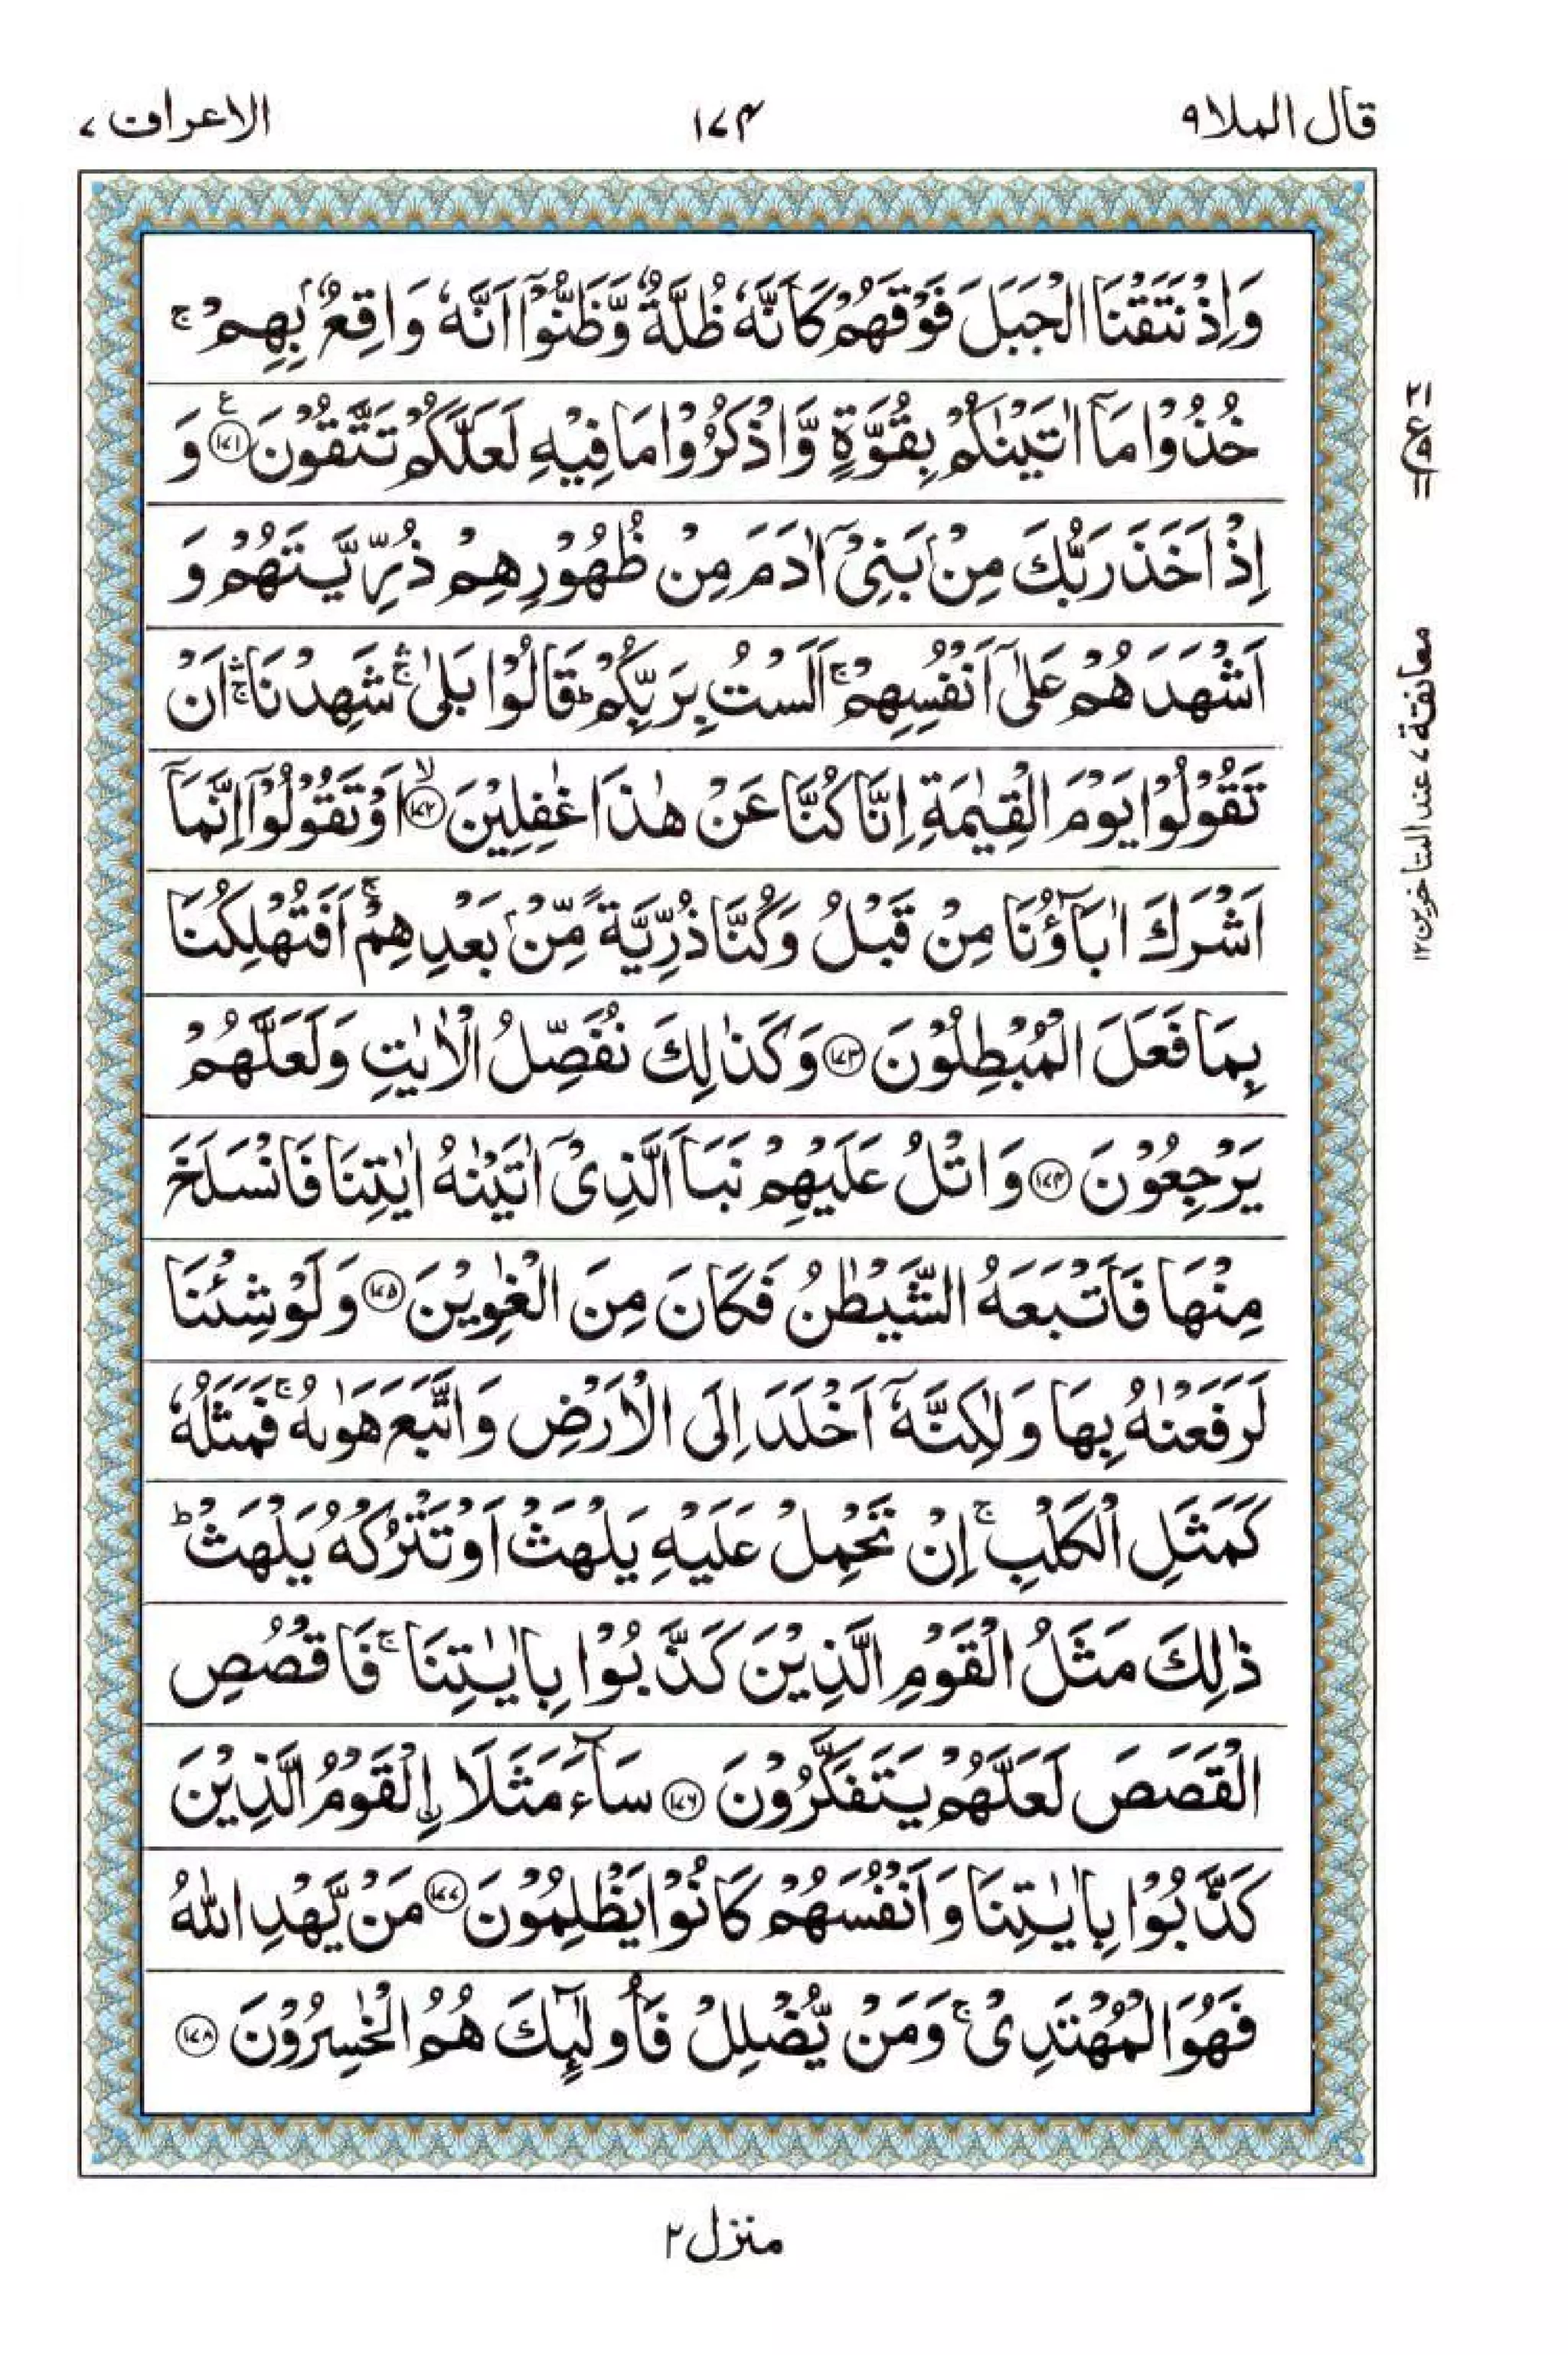 قال الملا ٩
١٧٤
الاعراف ٧
وَاِذْ نَتَقْنَا الْجَبَلَ فَوْقَهُمْ كَاَنَّهٗ ظُلَّةٌ وَّظَنُّوْۤا اَنَّهٗ وَاقِعٌۢ بِهِمْ ۚ
خُذُوْا مَاۤ اٰتَيْنٰكُمْ بِقُوَّةٍ وَّاذْكُرُوْا مَا فِيْهِ لَعَلَّكُمْ تَتَّقُوْنَ ﴿١٧١﴾ ع وَ
اِذْ اَخَذَ رَبُّكَ مِنْۢ بَنِيْۤ اٰدَمَ مِنْ ظُهُوْرِهِمْ ذُرِّيَّتَهُمْ وَ
اَشْهَدَهُمْ عَلٰۤى اَنْفُسِهِمْ ۚ اَلَسْتُ بِرَبِّكُمْ ؕ قَالُوْا بَلٰى ۛۚ شَهِدْنَا ۛۚ اَنْ
تَقُوْلُوْا يَوْمَ الْقِيٰمَةِ اِنَّا كُنَّا عَنْ هٰذَا غٰفِلِيْنَ ﴿١٧٢﴾ ۙ اَوْ تَقُوْلُوْۤا اِنَّمَاۤ
اَشْرَكَ اٰبَآؤُنَا مِنْ قَبْلُ وَكُنَّا ذُرِّيَّةً مِّنْۢ بَعْدِهِمْ ۚ اَفَتُهْلِكُنَا
بِمَا فَعَلَ الْمُبْطِلُوْنَ ﴿١٧٣﴾ وَكَذٰلِكَ نُفَصِّلُ الْاٰيٰتِ وَلَعَلَّهُمْ
يَرْجِعُوْنَ ﴿١٧٤﴾ وَاتْلُ عَلَيْهِمْ نَبَاَ الَّذِيْۤ اٰتَيْنٰهُ اٰيٰتِنَا فَانْسَلَخَ
مِنْهَا فَاَتْبَعَهُ الشَّيْطٰنُ فَكَانَ مِنَ الْغٰوِيْنَ ﴿١٧٥﴾ وَلَوْ شِئْنَا
لَرَفَعْنٰهُ بِهَا وَلٰكِنَّهٗۤ اَخْلَدَ اِلَى الْاَرْضِ وَاتَّبَعَ هَوٰىهُ ۚ فَمَثَلُهٗ
كَمَثَلِ الْكَلْبِ ۚ اِنْ تَحْمِلْ عَلَيْهِ يَلْهَثْ اَوْ تَتْرُكْهُ يَلْهَثْ ؕ
ذٰلِكَ مَثَلُ الْقَوْمِ الَّذِيْنَ كَذَّبُوْا بِاٰيٰتِنَا ۚ فَاقْصُصِ
الْقَصَصَ لَعَلَّهُمْ يَتَفَكَّرُوْنَ ﴿١٧٦﴾ سَآءَ مَثَلَا اۨلْقَوْمُ الَّذِيْنَ
كَذَّبُوْا بِاٰيٰتِنَا وَاَنْفُسَهُمْ كَانُوْا يَظْلِمُوْنَ ﴿١٧٧﴾ مَنْ يَّهْدِ اللّٰهُ
فَهُوَ الْمُهْتَدِيْ ۚ وَمَنْ يُّضْلِلْ فَاُولٰٓئِكَ هُمُ الْخٰسِرُوْنَ ﴿١٧٨﴾
ع
معانقة ٧ عند المتاخرين ١٢
منزل ٢